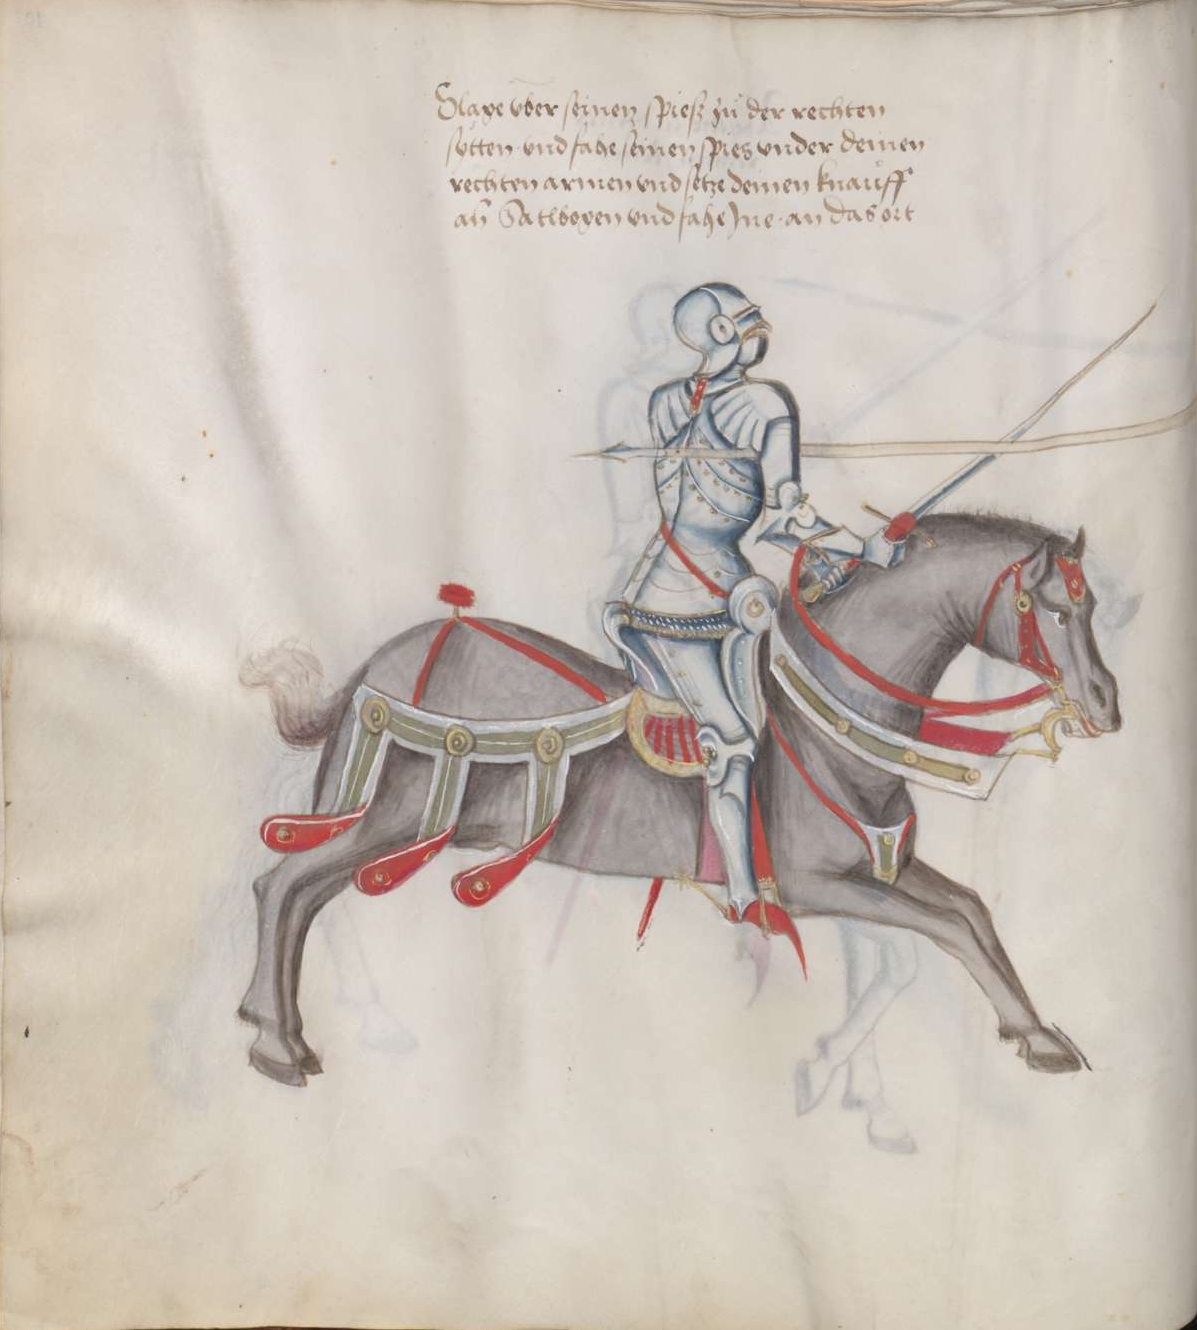 Slage vber seinen spiesz zů der rechten
sÿtten vnd fahe seinen spies vnder deinen
rechten armen vnd setze deinen knauff
an Satlbogen vnd fahe Jne an das ort